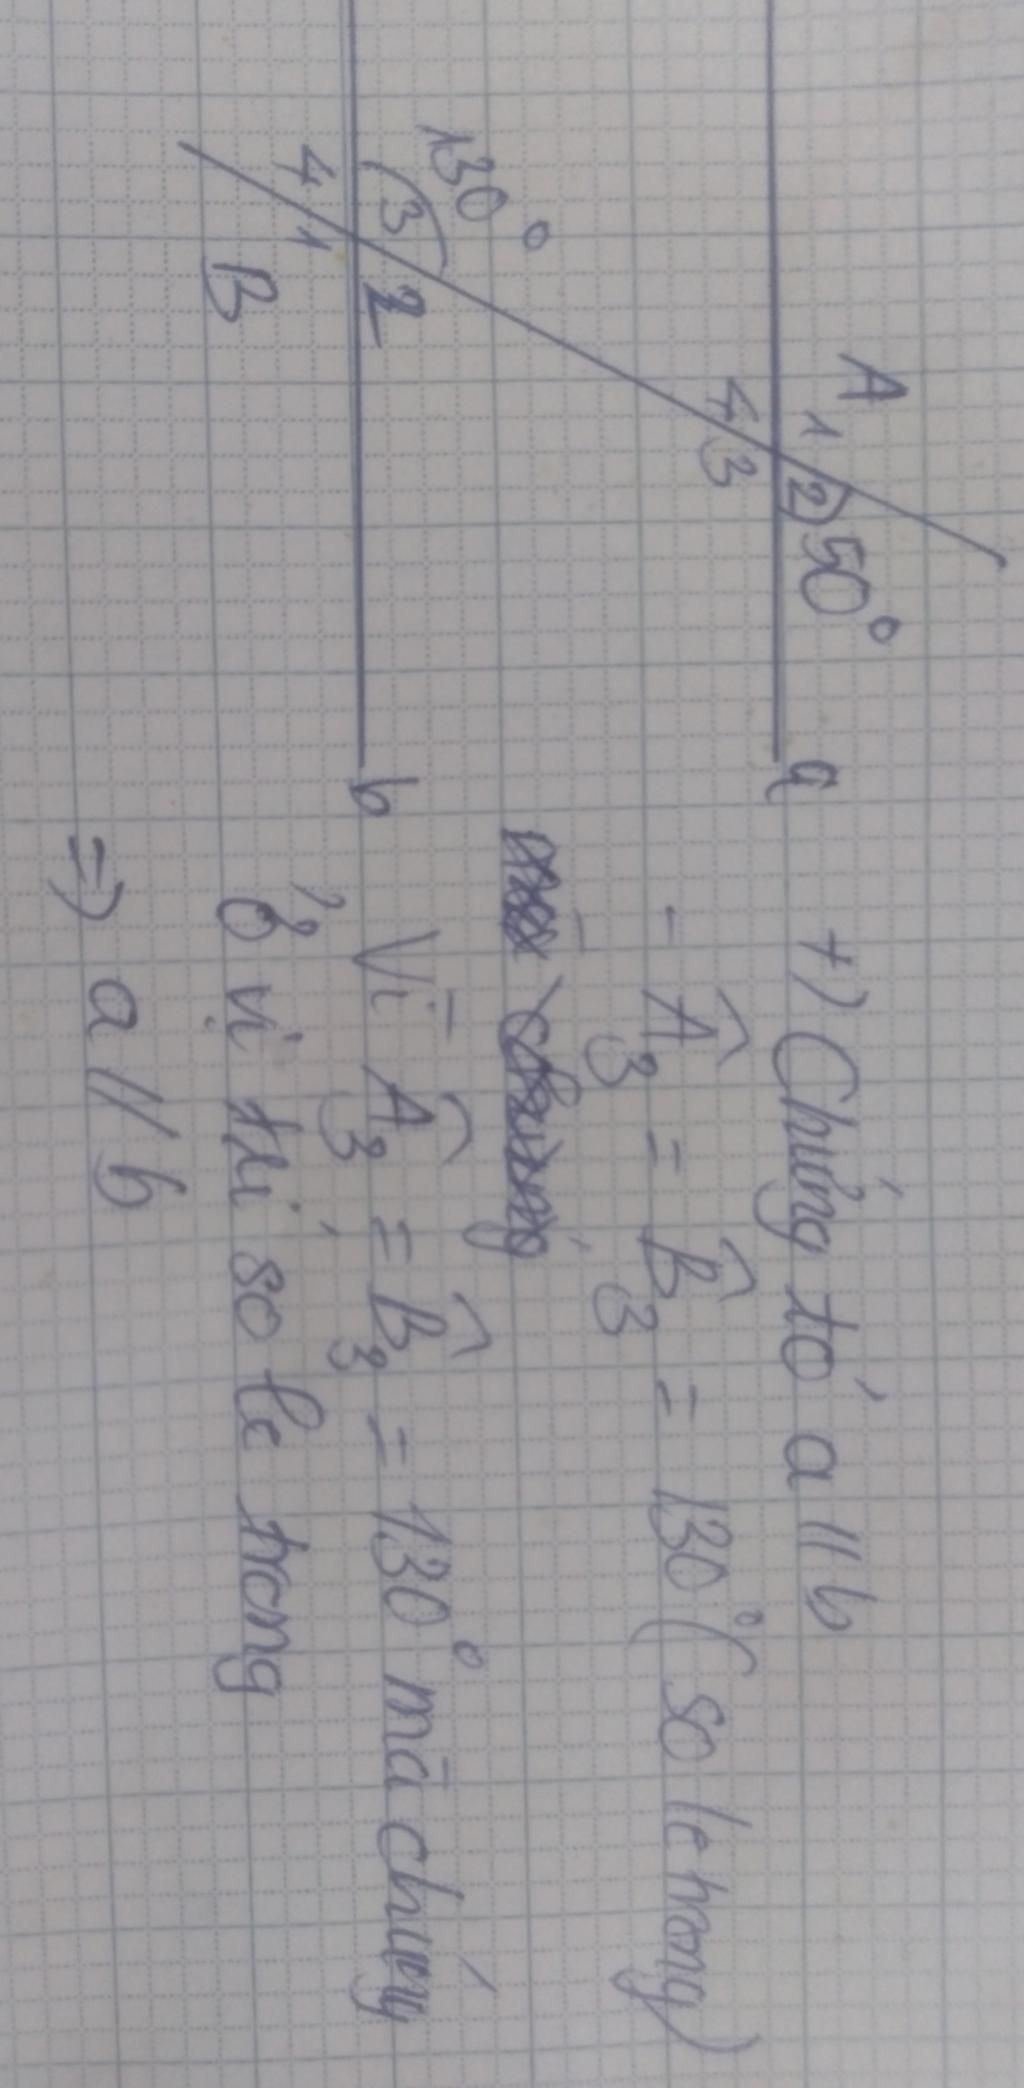 A
1
2
50°
a
4
3
130°
3
2
b
4
1
B
+) Chứng tỏ a // b
- Â3 = B̂3 = 130° (so le trong)
Vì Â3 = B̂3 = 130° mà chúng
ở vị trí so le trong
=> a // b